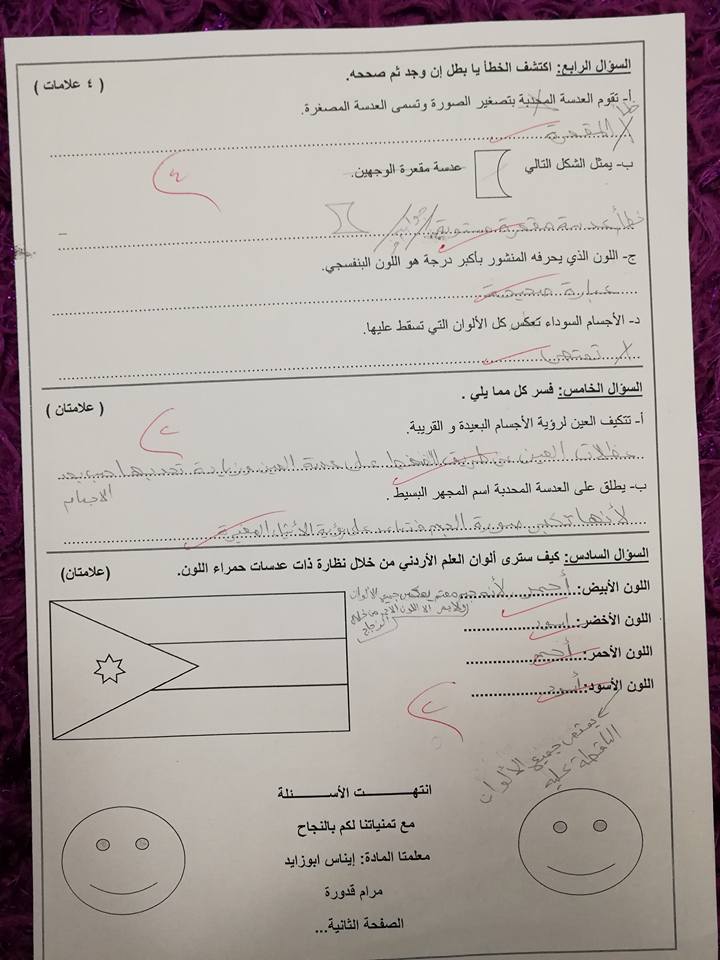 السؤال الرابع: اكتشف الخطأ يا بطل إن وجد ثم صححه.
( ٤ علامات )
أ- تقوم العدسة المحدبة بتصغير الصورة وتسمى العدسة المصغرة.
خطأ
المقعرة
٤
ب- يمثل الشكل التالي
عدسة مقعرة الوجهين.
خطأ عدسة مقعرة مستوية
ج- اللون الذي يحرفه المنشور بأكبر درجة هو اللون البنفسجي.
عبارة صحيحة
د- الأجسام السوداء تعكس كل الألوان التي تسقط عليها.
تمتص
السؤال الخامس: فسر كل مما يلي .
( علامتان )
٢
أ- تتكيف العين لرؤية الأجسام البعيدة و القريبة.
عضلات العين عن طريق الضغط على عدسة العين وزيادة تحدبها حسب بعد
الأجسام
ب- يطلق على العدسة المحدبة اسم المجهر البسيط .
لأنها تكبر صورة الجسم فتساعد على رؤية الأشياء الصغيرة
السؤال السادس: كيف سترى ألوان العلم الأردني من خلال نظارة ذات عدسات حمراء اللون.
(علامتان)
اللون الأبيض: أحمر لأنه يعكس جميع الألوان
ولا يمر الا اللون الأحمر من خلال
الزجاج
اللون الأخضر: اسود
اللون الأحمر: أحمر
اللون الأسود: أسود
٢
يمتص جميع الألوان
الساقطة عليه
انتهت الأسئلة
مع تمنياتنا لكم بالنجاح
معلمتا المادة: إيناس ابوزايد
مرام قدورة
الصفحة الثانية...